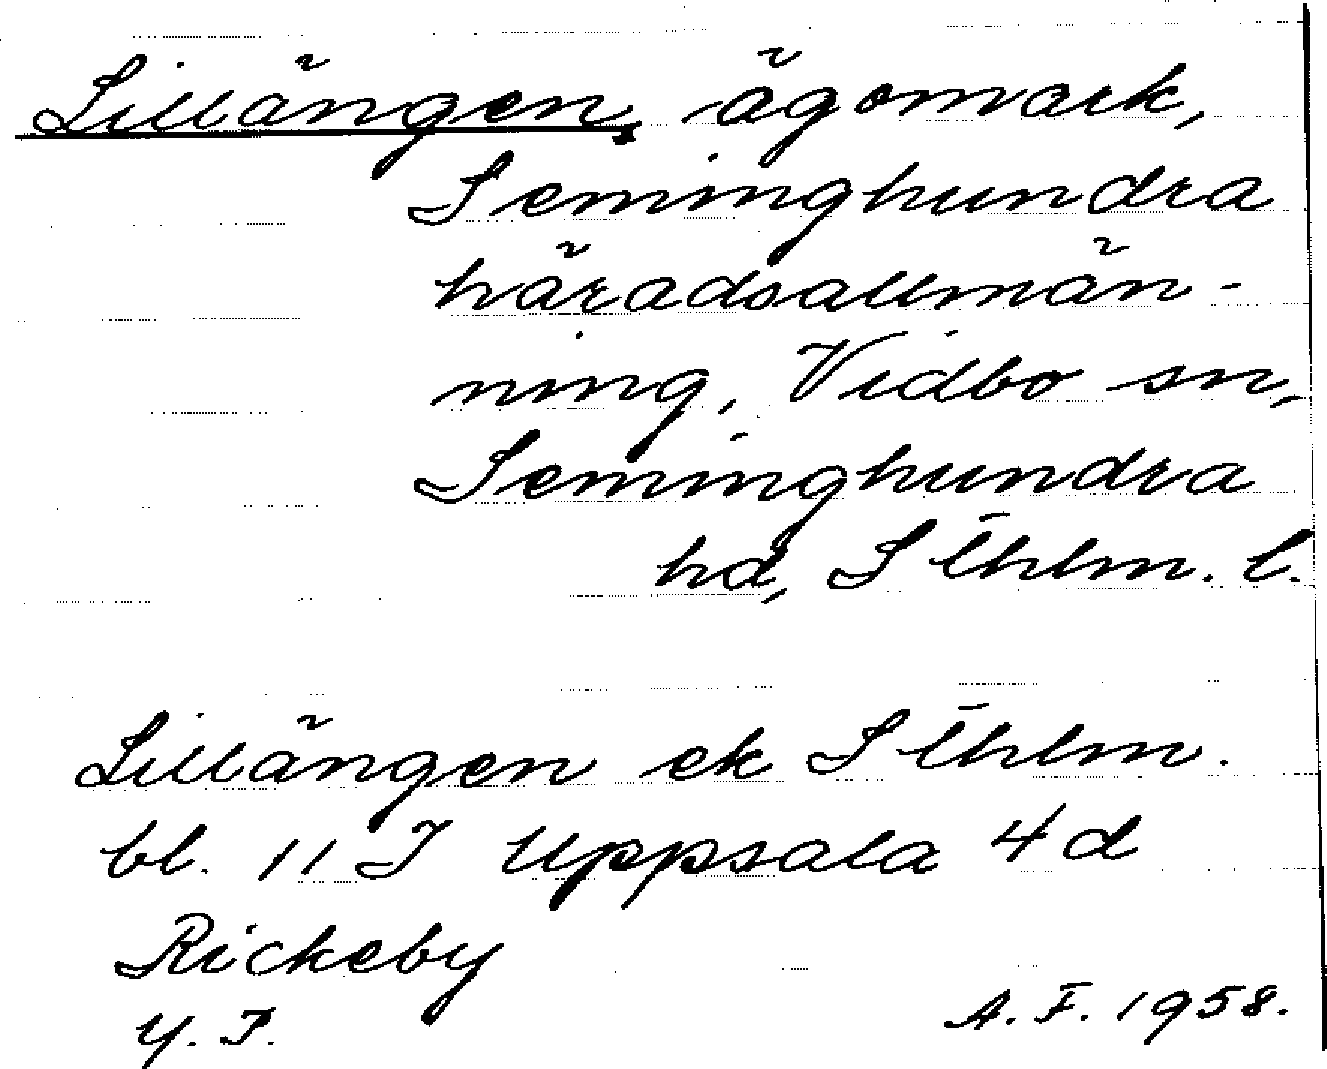 Lillängen, ägomark,
Seminghundra
häradsallmän-
ning, Vidbo sn,
Seminghundra
hd, Sthlm. l.
Lillängen ek Sthlm.
bl. 11 I Uppsala 4 d
Rickeby
Y. P.
A. F. 1958.